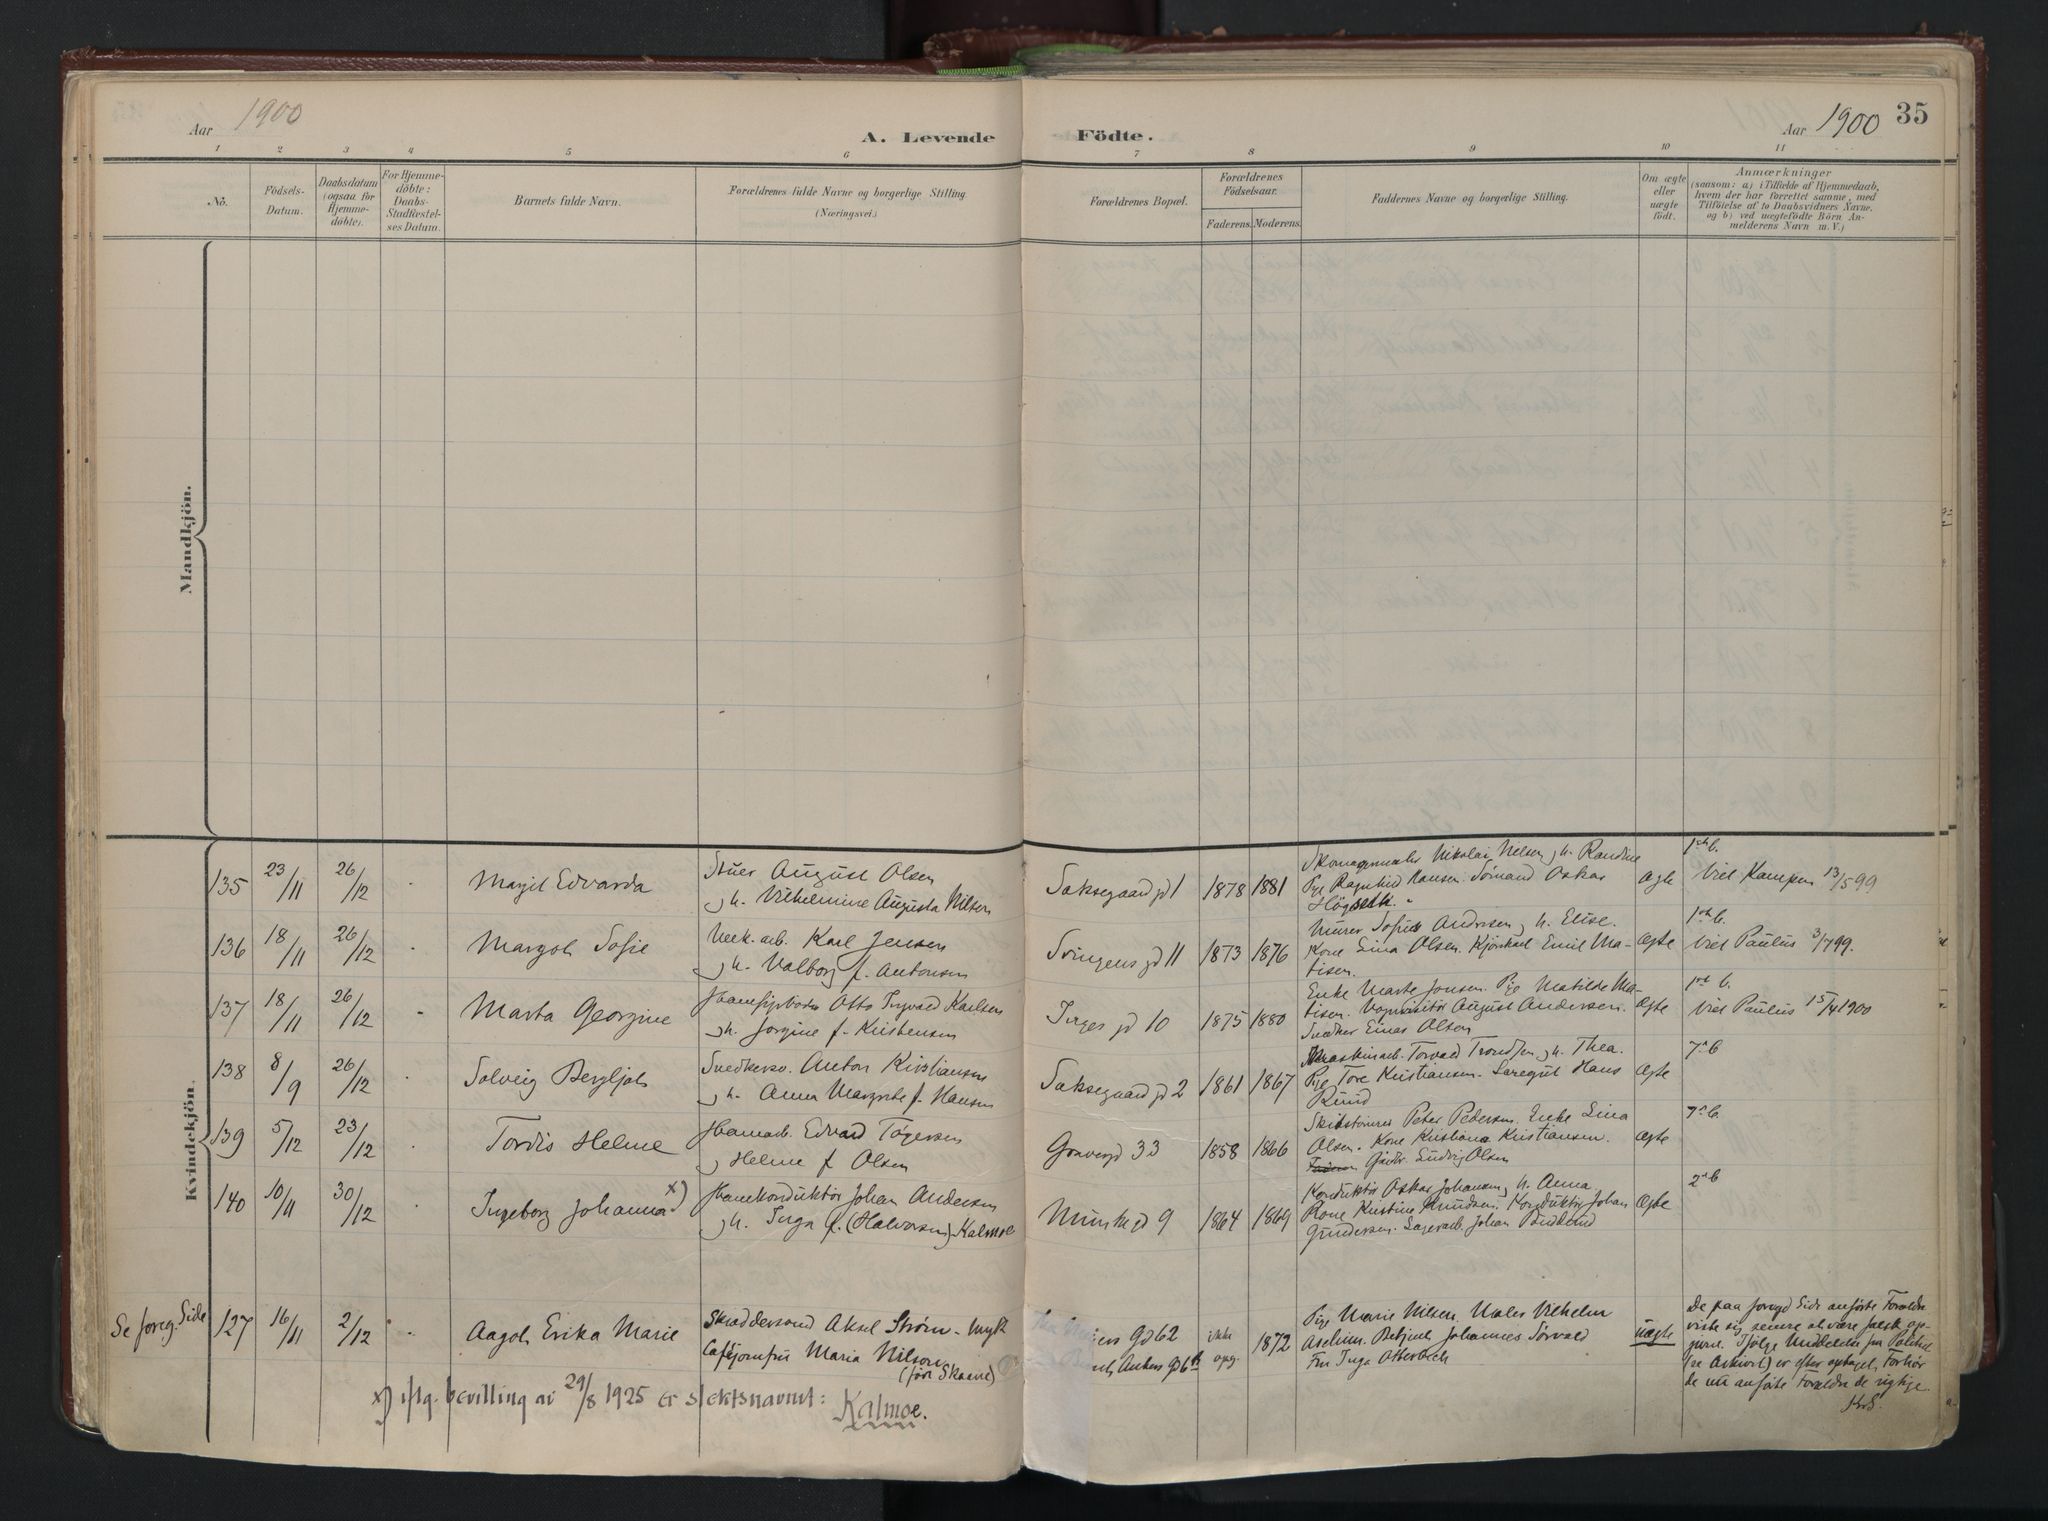 Aar 1900
A. Levende
Födte.
Aar 1900
35
1 2 3 4 5 6 7 8 9 10 11
No.
Födsels-
Datum.
Daabsdatum
(ogsaa for
Hjemme-
döbte).
For Hjemme-
döbte:
Daabs-
Stadfæstel-
ses Datum.
Barnets fulde Navn.
Forældrenes fulde Navne og borgerlige Stilling.
(Næringsvei.)
Forældrenes Bopæl.
Forældrenes
Födselsaar.
Faderens. Moderens.
Faddernes Navne og borgerlige Stilling.
Om ægte
eller
uægte
födt.
Anmærkninger
(saasom: a) i Tilfælde af Hjemmedaab,
hvem der har forrettet samme, med
Tilföielse af to Daabsvidners Navne.
og b) ved uægtefödte Börn An-
melderens Navn m. V.)
Mandkjön.
Kvindekjön.
135 23/11 26/12 Margit Edvarda
Stuer August Olsen
og h. Vilhelmine Augusta Nilsen
Saksegaard gd 1 1878 1881
Skomagermester Nikolai Nelsen og h. Randine
Pige Ragnhild Hansen. Sömand Oskar
Ægte
Viet Kampen 13/5 99
136 18/11 26/12 Margoth Sofie
Mek. arb. Karl Jensen
og h. Valborg f. Antonsen
Svingens gd 11 1873 1876
Murer Sofus Andersen og h. Elise.
Kone Lina Olsen. Emil Ma-
tisen.
Ægte
Viet Paulus 3/7 99.
137 18/11 26/12 Marta Georgine
Otto Ingvald Karlsen
og h. Jorgine f. Kristensen
Inges gd 10 1875 1880
Enke Marte Jonsen. Pige Matilde Ma-
tisen. August Andersen.
Snedker Einar Olsen
Ægte
Viet Paulus 15/4 1900
138 8/9 26/12 Solveig Bergljot
Snedkersv. Anton Kristiansen
og h. Anna Margrete f. Hansen
Saksegaard gd 2 1861 1867
Maskinarb. Torvald Trondsen og h. Thea.
Pige Tore Kristiansen. Hans
Ruud
Ægte
7de b.
139 5/12 23/12 Tordis Helene
Havnearb. Edvard Tögersen
og Helene f. Olsen
Gravergd 33 1858 1866
Peter Pedersen. Enke Lina
Olsen. Kone Kristiana Kristiansen.
Ludvig Olsen
Ægte
7de b.
140 10/11 30/12 Ingeborg Johanna x)
Johan Andersen
og h. Inga f. (Halvorsen) Kalmoe
Munkegd 9 1864 1869
Konduktör Oskar Johansen og h. Anna
Kone Kristine Knudsen. Konduktör Johan
Gundersen. Lagerarb. Johan
Ægte
2det b
Se foreg. Side 127 16/11 2/12 Aagot Erika Marie
Skræddersvend Aksel Ström - ugift
Cafejomfru Maria Nilson
(före Skaane)
Gd 62
ikke
opg. 1872
Pige Marie Nilsen. Maler Vilhelm
Axelsen. Betjent Johannes Sörvald
Fru Inga Otterbech
uægte
De paa foregd Side anförte Forældre
viste sig senere at være falsk op-
givne. Ifölge Meddelelse fra Politiet
(se Arkivet) er efter optaget Forhör
de nu anförte Forældre de rigtige.
x) iflg. bevilling av 29/8 1925 er slektsnavnet:
Kalmoe.